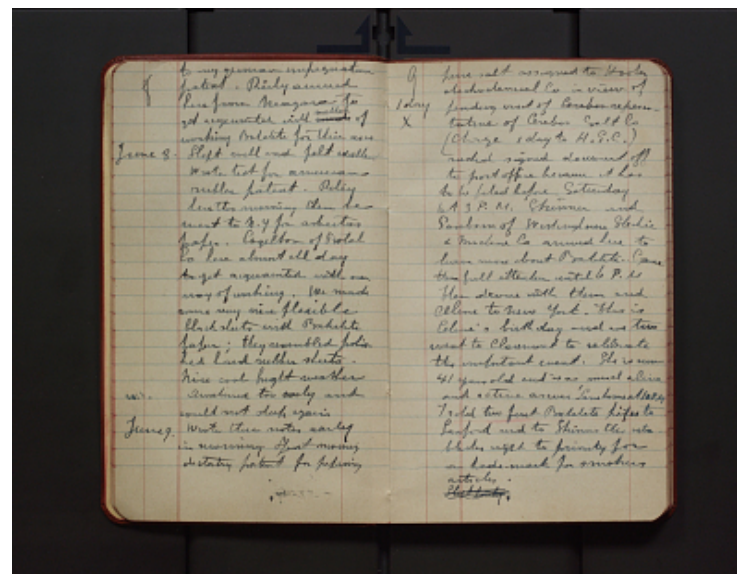 to my german impregnation
patent. Riely arrived
here from Niagara to
get acquainted with method of
working Bakelite for their use
June 8. Slept well and felt
Wrote text for american
rubber patent. Riley
here this morning then he
went to N.Y for asbestos
paper. of
Co here almost all day
to get acquainted with our
way of working. We made
some very nice flexible
black sheets with Bakelite
paper; they resembled polis-
hed hard rubber sheets.
Nice cool bright weather
Awakened too early and
could not sleep again
June 9. Wrote these notes early
in morning. Spent morning
dictating patent for purifying
9
1 day
X
pure salt assigned to Hooker
electrochemical Co in view of
pending visit of Cerebos represen-
tative of Cerebos Salt Co
(Charge 1 day to H.E.C.)
rushed signed document off
to post office because it has
to be filed before Saturday
At 3 P.M. Skinner and
Sanborn of Westinghouse Electric
& Machine Co arrived here to
learn more about Bakelite. Gave
them full attention until 6 P.M
then dinner with them and
Celine to New York. This is
Celine's birthday and we two
went to Claremont to celebrate
the important event. She is now
41 years old and is as much alive
and active as ever.
I sold two first Bakelite pipes to
Sanford and to Skinner thus esta-
blishes right to priority for
a trade mark for smokers
articles.